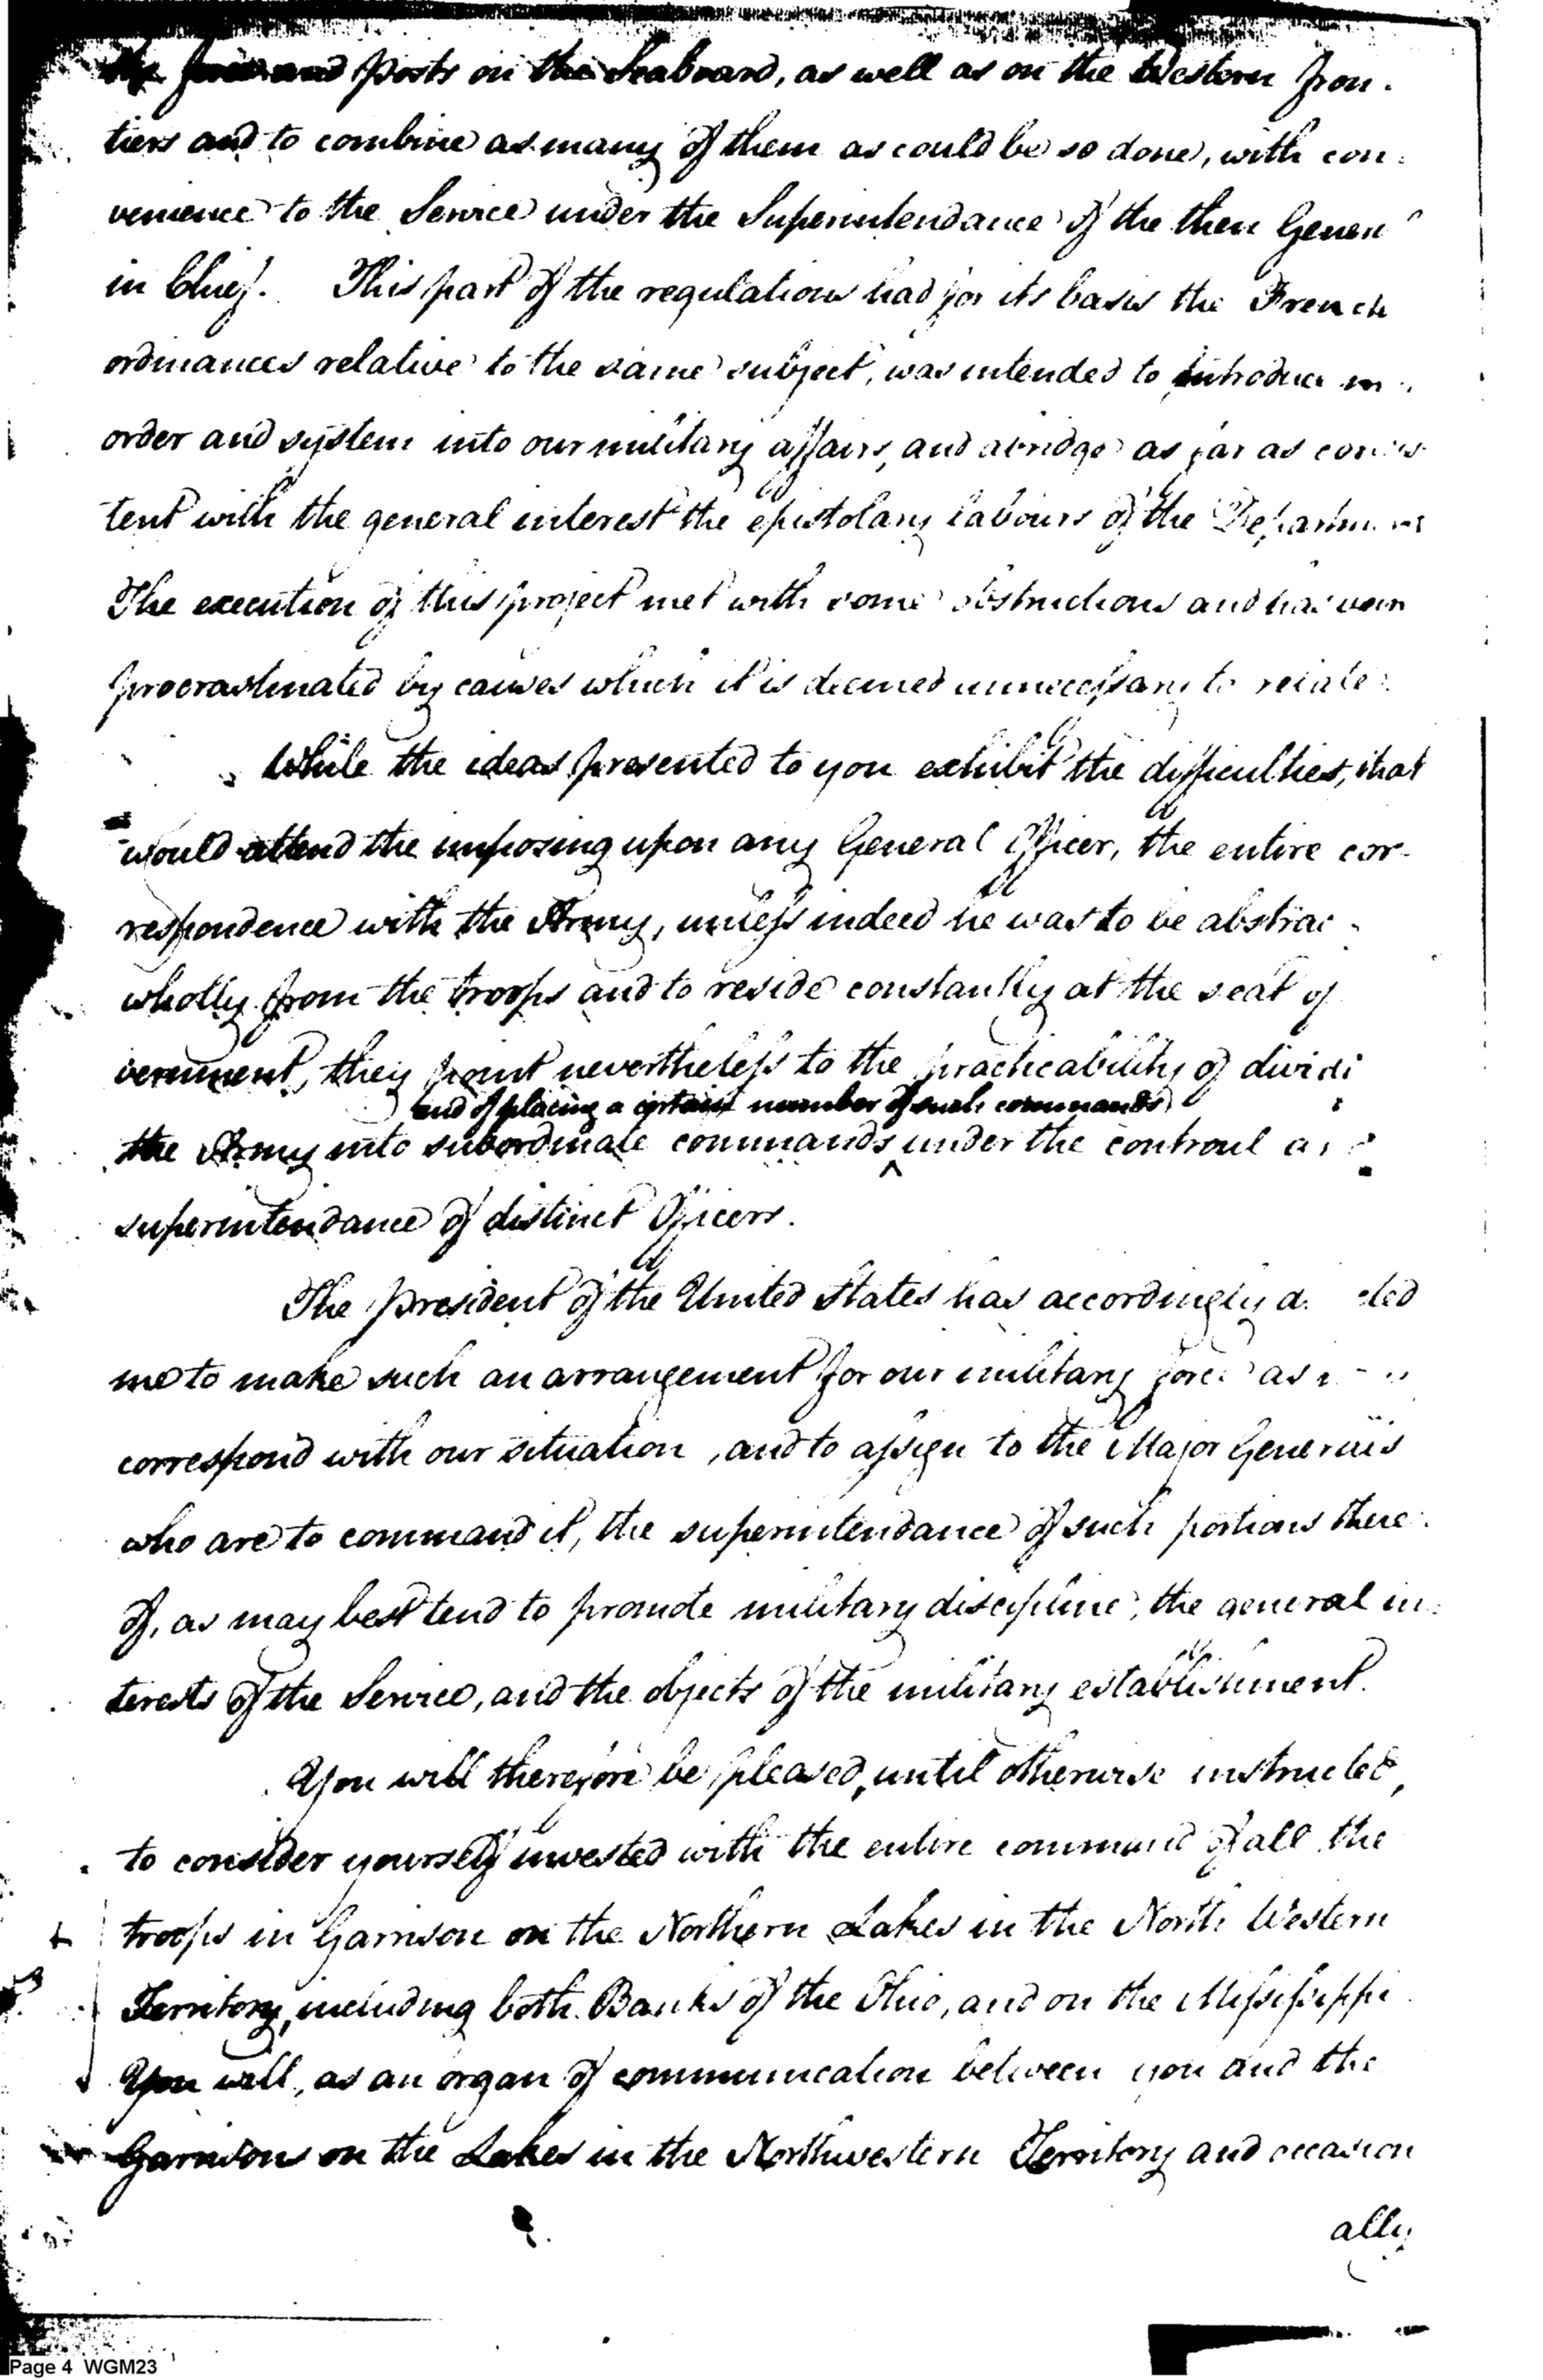 the posts on the Seaboard, as well as on the Western fron-
tiers and to combine as many of them as could be so done, with con-
venience to the Service under the Superintendance of the then General
in Chief. This part of the regulations had for its basis the French
ordinances relative to the same subject, was intended to introduce
order and system into our military affairs, and abridge as far as consis-
tent with the general interest the epistolary labours of the Department
The execution of this project met with some obstructions and has been
procrastinated by causes which it is deemed unnecessary to relate.
While the ideas presented to you exhibit the difficulties, that
would attend the imposing upon any General Officer, the entire cor-
respondence with the Army, unless indeed he was to be abstrac
wholly from the troops and to reside constantly at the seat of
vernment, they point nevertheless to the practicability of dividi
and of placing a certain number of such commands
the Army into subordinate commands ^ under the controul and
superintendance of distinct Officers.
The president of the United States has accordingly d cted
me to make such an arrangement for our military force as
correspond with our situation, and to assign to the Major Generals
who are to command it, the superintendance of such portions there-
of, as may best tend to promote military discipline, the general in-
terests of the Service, and the objects of the military establishment.
You will therefore be pleased, until otherwise instructed,
to consider yourself invested with the entire command of all the
troops in Garrison on the Northern Lakes in the North Western
Territory, including both Banks of the Ohio, and on the Missisippi
You will, as an organ of communication between you and the
Garrisons on the Lakes in the Northwestern Territory and occasion
ally
Page 4 WGM23